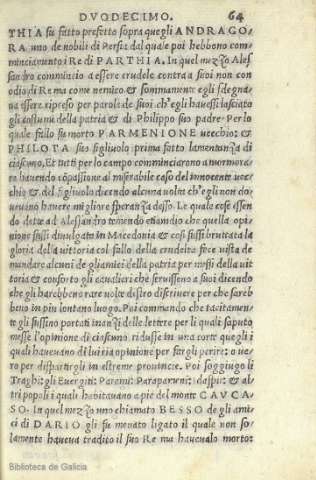 DVODECIMO. 64
THIA fu fatto prefetto sopra quegli ANDRAGO/
RA uno de nobili di Persia dal quale poi hebbono com
minciamento i Re di PARTHIA. In quel mezzo Ales/
sandro comincio a essere crudele contra a suoi non con
odio di Re ma come nemico & sommamente egli sdegna/
ua essere ripreso per parole de suoi ch'egli hauessi lasciato
gli costumi della patria & di Philippo suo padre. Per lo
quale fallo fu morto PARMENIONE uecchio: &
PHILOTA suo figliuolo prima fatto lamentanza di
ciascuno. Et tutti per lo campo comminciarono a mormora/
re hauendo cōpassione al miserabile caso del innocente uec/
chio & del figliuolo dicendo alcuna uolta ch'egli non do/
ueuano hauere migliore speranza desso. Le quale cose essen
do dette ad Alessandro temendo etiamdio che quella opi/
nione fussi diuulgata in Macedonia & cosi fussi bruttata la
gloria della uittoria col fallo della crudelta fece uista de
mandare alcuni de gli amici della patria per messi della uit
toria & conforto gli caualieri che scriuessono a suoi dicendo
che gli harebbono rare uolte destro discriuere per che sareb
bono in piu lontano luogo. Poi commando che tacitamen/
te gli fussino portati inanzi delle lettere per li quali saputo
messe l'opinione di ciascuno ridusse in una torte quegli i
quali haueuano di lui ria opinione per fargli perire: o ue/
ro per dispartirgli in estreme prouincie. Poi soggiugo li
Traghi: gli Euergiti: Parami: Paraparmini: daspii: & al
tri popoli i quali habitauano a pie del monte CAVCA/
SO. In quel mezzo uno chiamato BESSO de gli ami/
ci di DARIO gli fu menato ligato il quale non so/
lamente haueua tradito il suo Re ma haueualo morto:
Biblioteca de Galicia